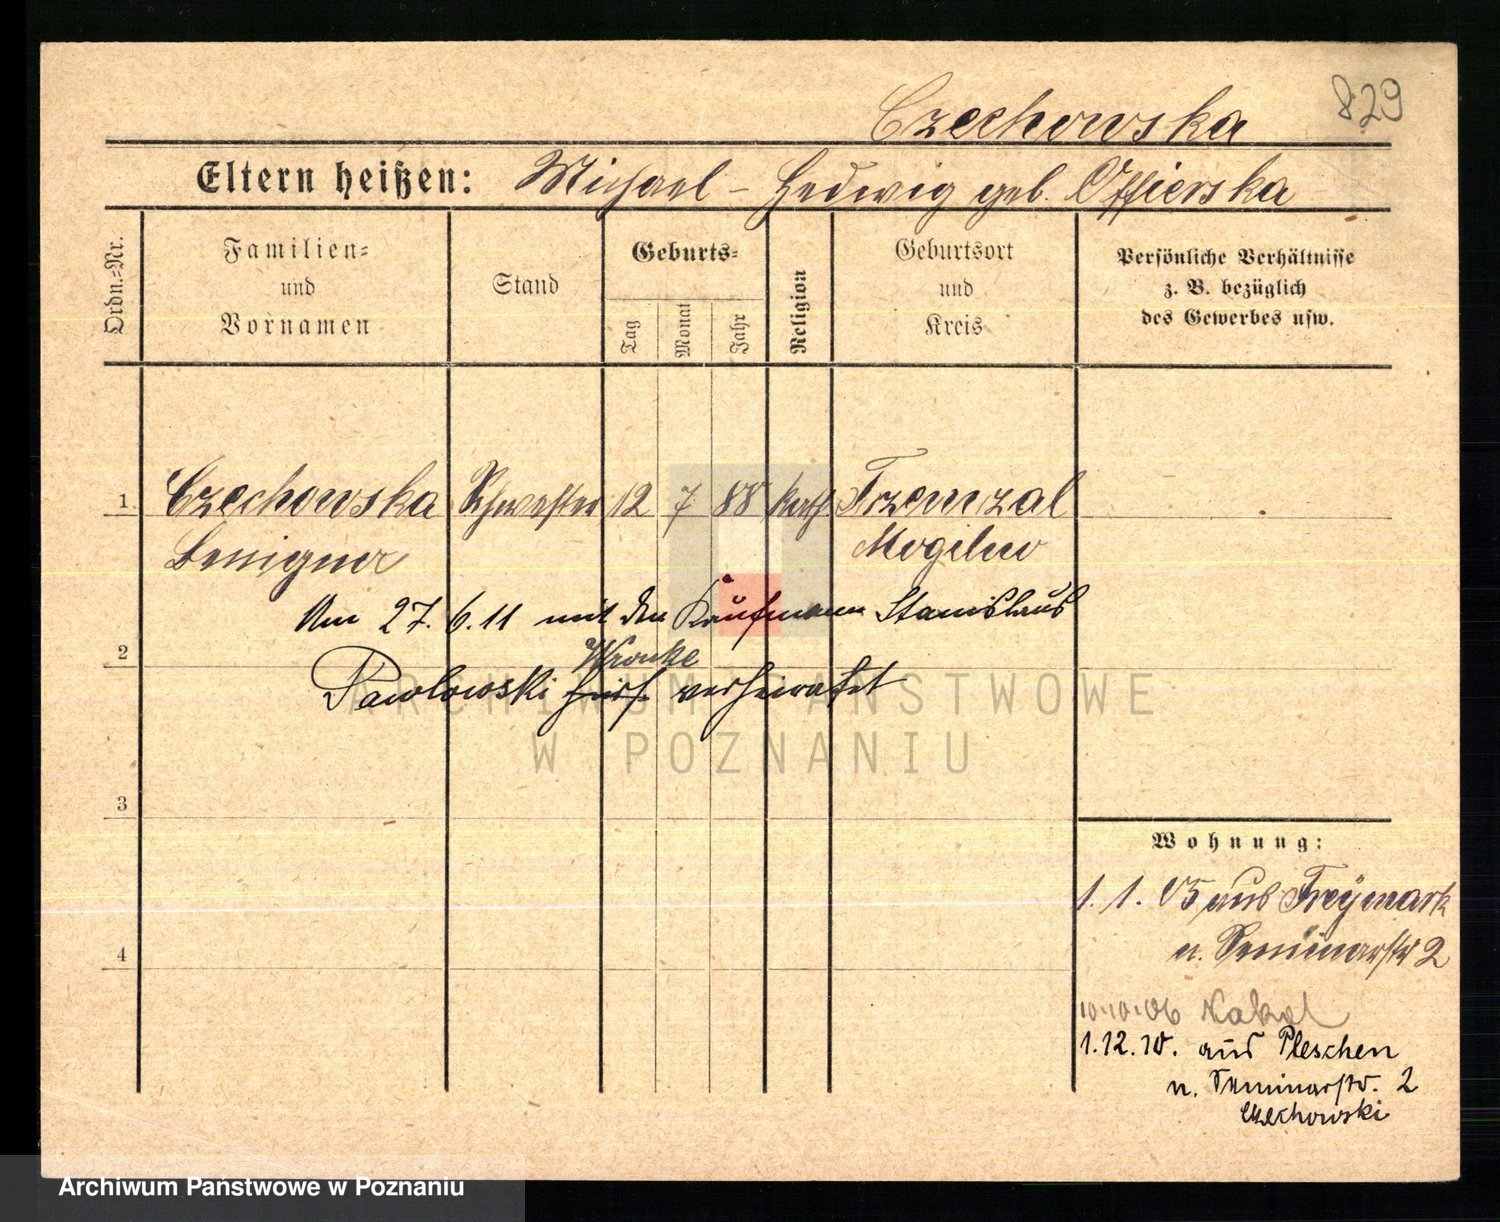 829
Czechowska
Eltern heißen: Michael - Hedwig geb. Offierska
Ordn.-Nr.
Familien- und Vornamen
Stand
Geburts-
Tag
Monat
Jahr
Religion
Geburtsort und Kreis
Persönliche Verhältnisse z. B. bezüglich des Gewerbes usw.
1 Czechowska Schwester 12 7 88 kath. Trzemzal
Benigna Mogilno
Am 27.6.11 mit den Kaufmann Stanislaus
2
Wronke
Pawlowski hier verheiratet
3
4
Wohnung:
1. 1. 05 aus Freymark
n. Seminarstr 2
10.10.06 Nakel
1.12.10. aus Pleschen
n. Seminarstr. 2
Czechowski
ARCHIWUM PAŃSTWOWE
W POZNANIU
Archiwum Państwowe w Poznaniu